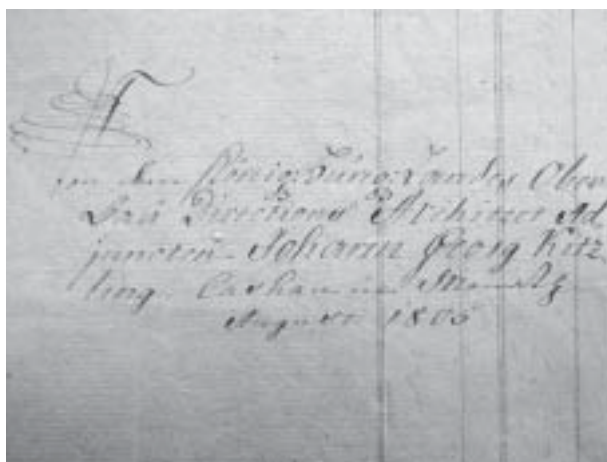 von dem König: Hung: Landes Ober
Bau Directions Architect Ad
juncten Johann Georg Kitz
ling. Caschau im Monath
August 1805